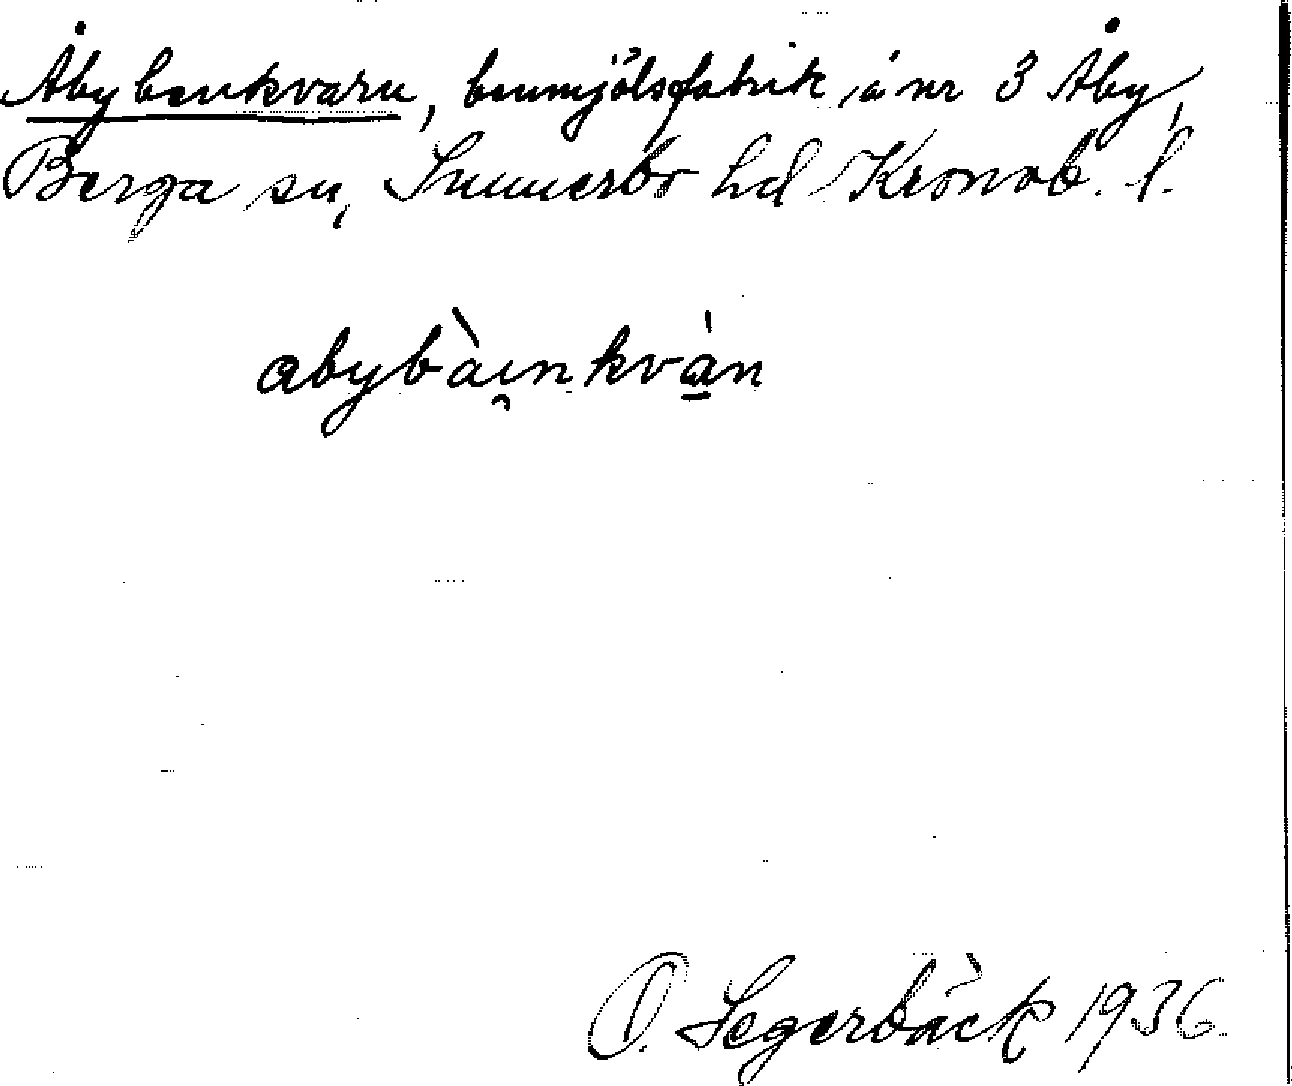 Åby benkvarn, benmjölsfabrik å nr 3 Åby,
Berga sn, Sunnerbo hd Kronob. l.
abybàınkvàn
O. Segerbäck 1936.